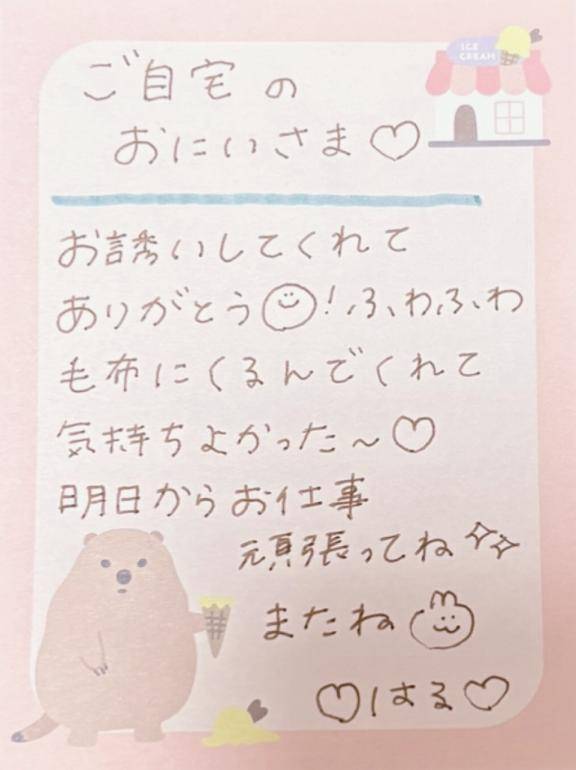 ICE
CREAM
ご自宅の
おにいさま♡
お誘いしてくれて
ありがとう☺!ふわふわ
毛布にくるんでくれて
気持ちよかった〜♡
明日からお仕事
頑張ってね✧✧
またね
♡はる♡